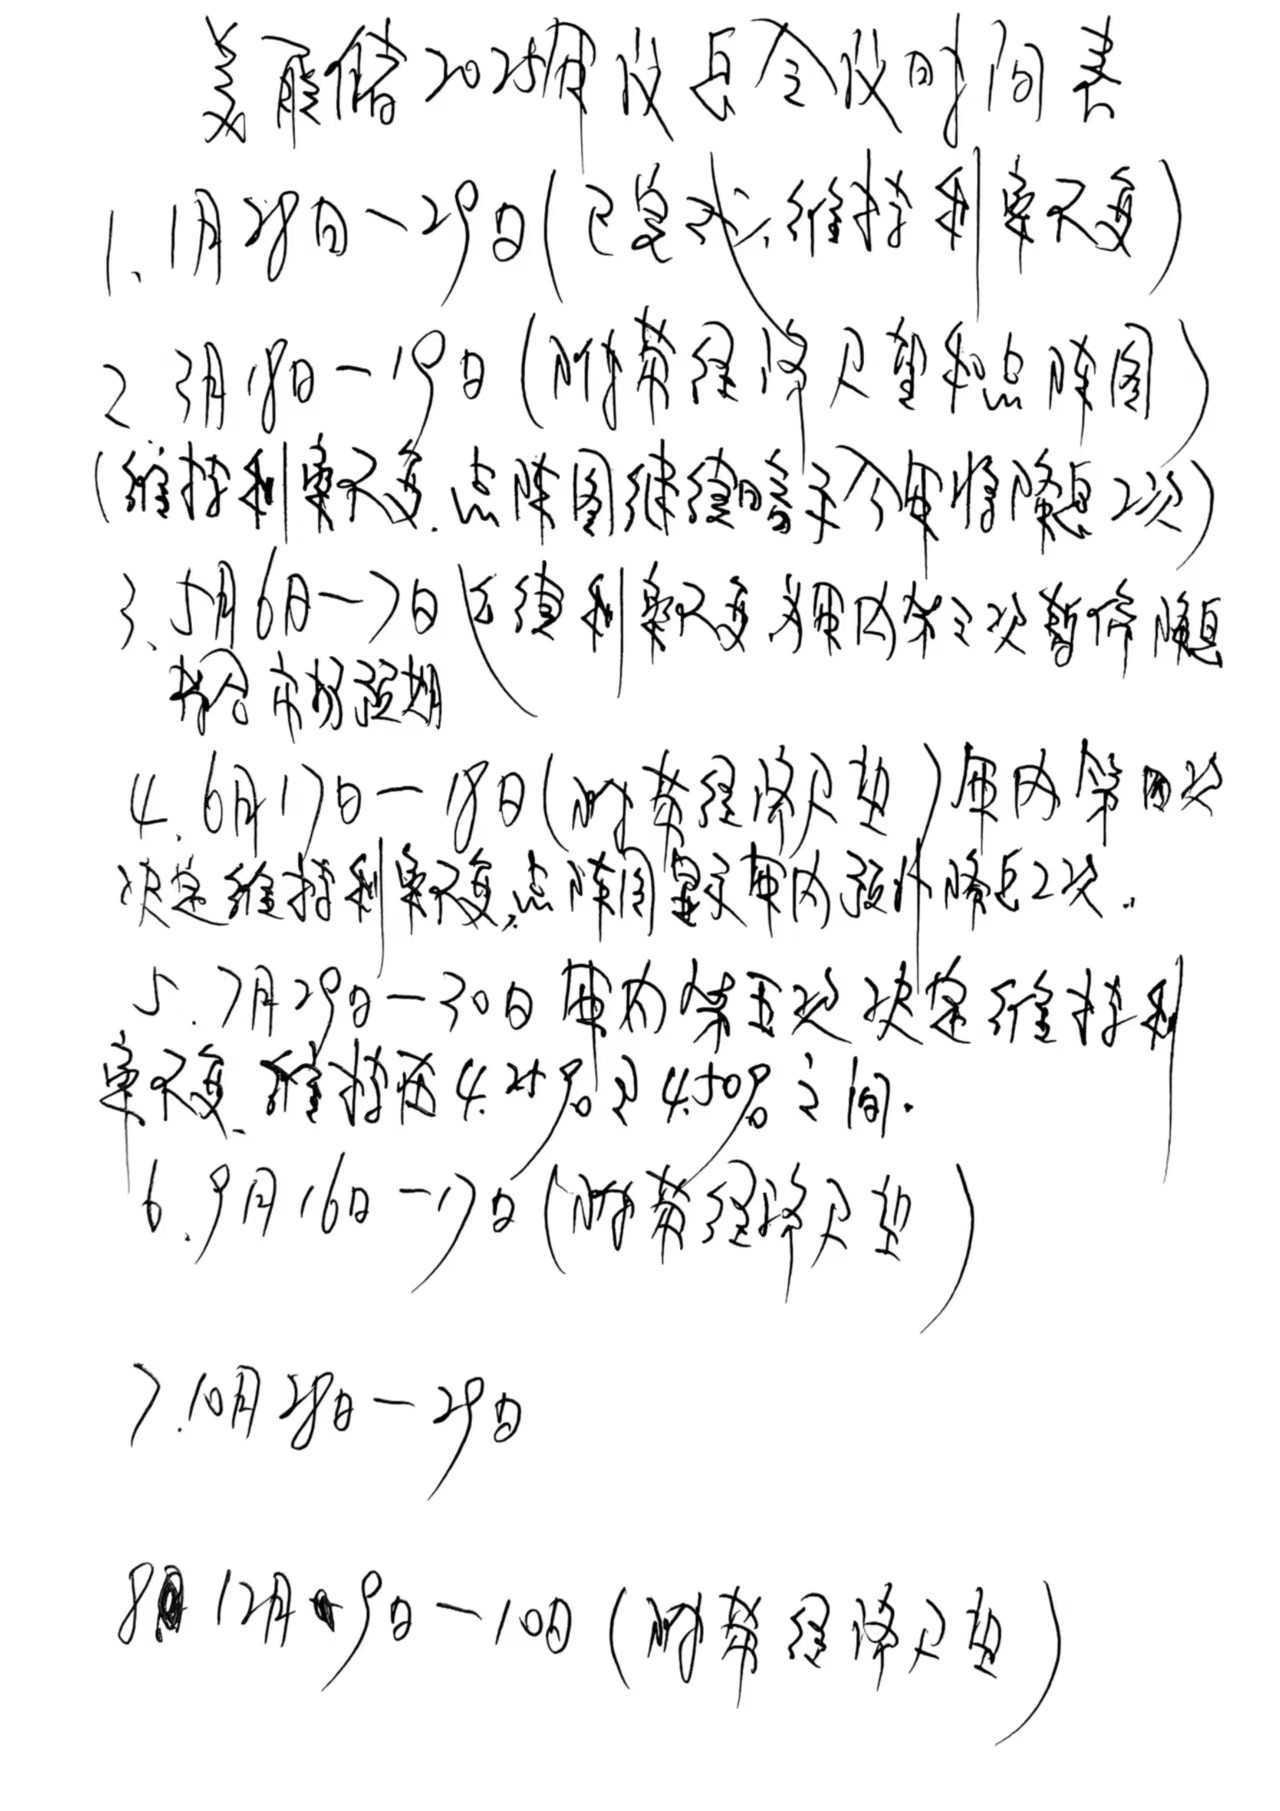 美联储2025年议息会议时间表
1.1月28日一29日(已完成,维持利率不变)
2 3月18日一19日(附带经济展望和点阵图)
(维持利率不变.点阵图继续暗示今年将降息2次)
3、5月6日一7日 利率不变 为年内第三次暂停降息
符合市场预期
4.6月17日一18日(附带经济展望)年内第四次
决定维持利率不变,点阵图显示年内预计降息2次.
5.7月29日一30日年内第五次决定维持利
率不变、维持在4.25%至4.50%之间.
6.9月16日一17日(附带经济展望)
7.10月28日一29日
8 12月9日一10日(附带经济展望)